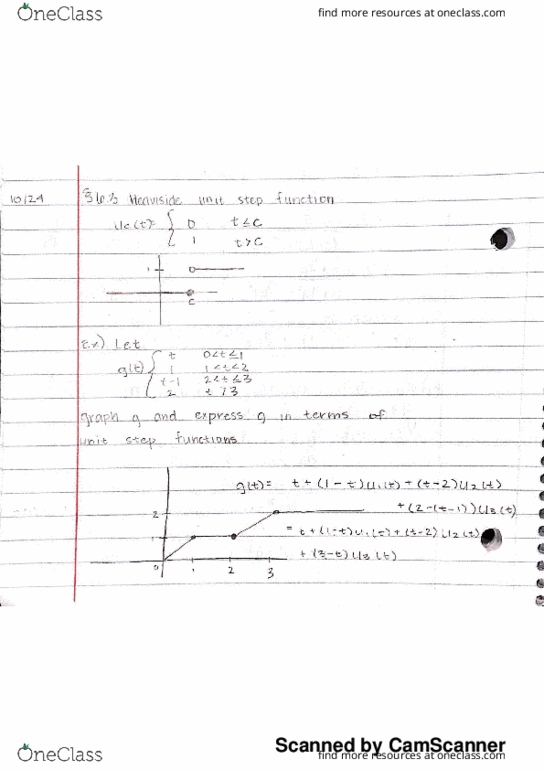 OneClass find more resources at oneclass.com
10/24 §6.3 Heaviside unit step function
uc(t)= { 0 t≤c
1 t>c
1
c
Ex) Let
g(t) { t 0<t≤1
1 1<t≤2
t-1 2<t≤3
2 t>3
graph g and express g in terms of
unit step functions.
g(t)= t+(1-t)u1(t)+(t-2)u2(t)
+(2-(t-1))u3(t)
= t+(1-t)u1(t)+(t-2)u2(t)
+(3-t)u3(t)
2
1
0 1 2 3
Scanned by CamScanner
OneClass find more resources at oneclass.com